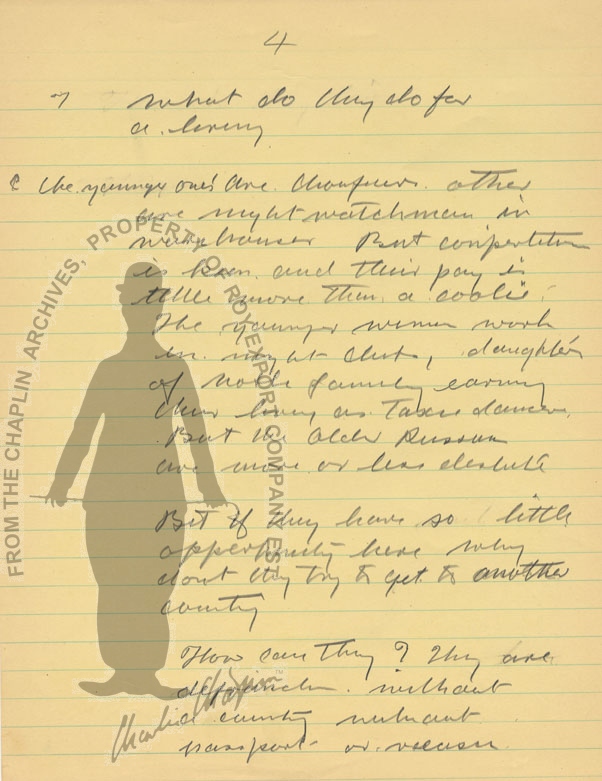 4
what do they do for
a living
the younger one's are chaufeurs. other
are nightwatchman in
warehouses But competition
is keen. and their pay is
little more than a coolie.
The younger women work
in night clubs, daughters
of noble family earning
their living as taxie dancers.
But the older Russian
are more or less destitute
But if they have so little
opportunity here why
dont they try to get to another
country
How can they? They are
without
a country without
passport or
FROM THE CHAPLIN ARCHIVES, PROPERTY OF ROY EXPORT COMPANY EST.
Charlie Chaplin